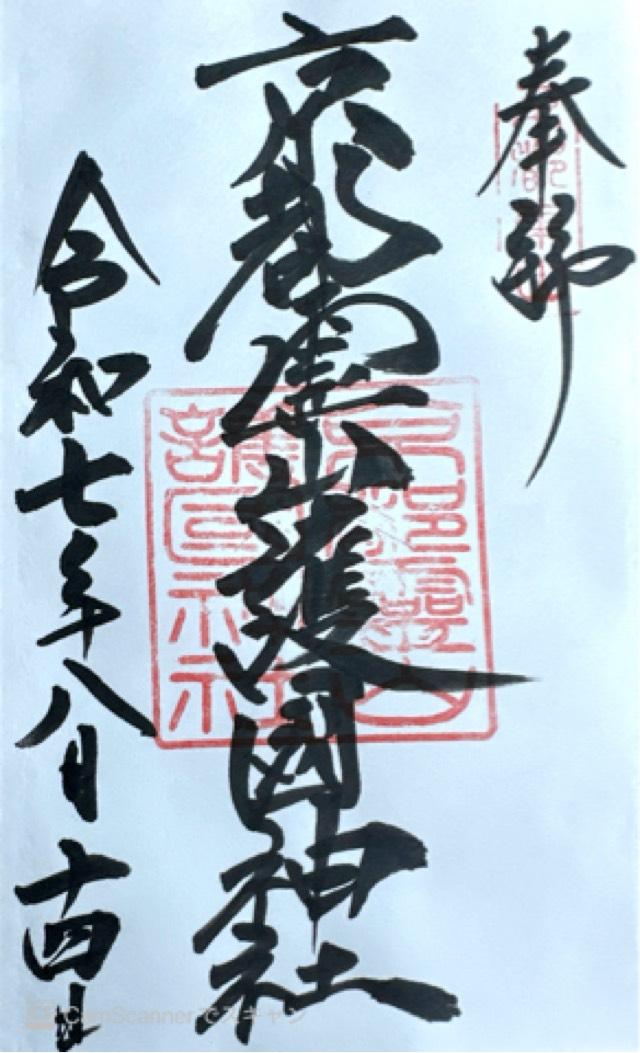 奉拝
京都霊山護國神社
令和七年八月十四日
CamScannerでスキャン